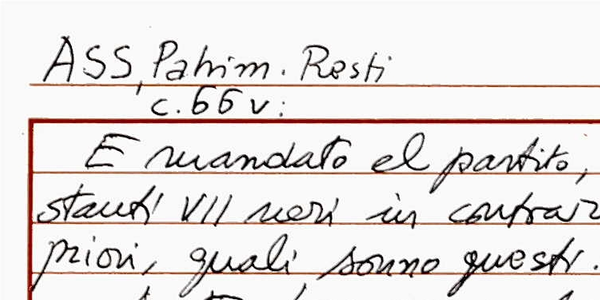 ASS, Patrim. Resti
c. 66 v:
E mandato el partito,
stanti VII neri in contrar
priori, quali sonno questi.